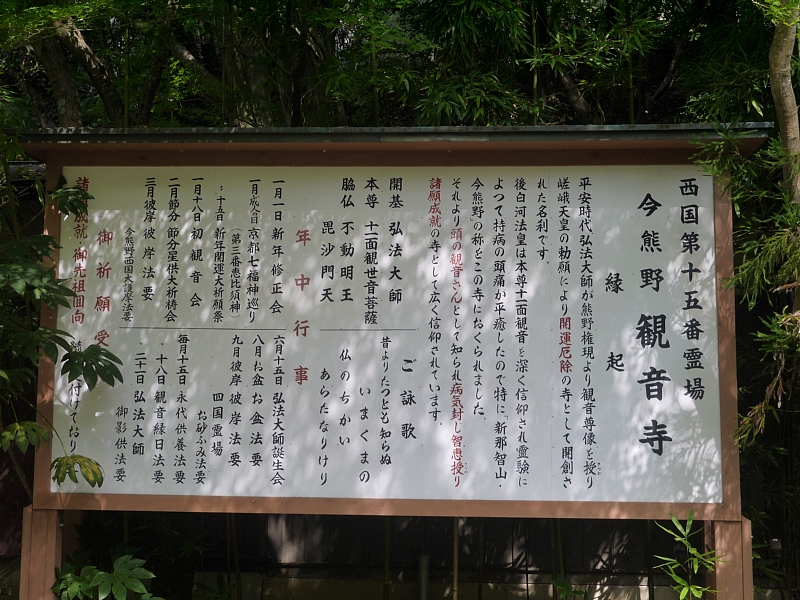 西国第十五番霊場
今熊野観音寺
縁起
平安時代 弘法大師が熊野権現より観音尊像を授り
嵯峨天皇の勅願により開運厄除の寺として開創さ
れた名刹です。
後白河法皇は本尊十一面観音を深く信仰され霊験に
よつて持病の頭痛が平癒したので特に「新那智山・
今熊野」の称をこの寺におくられました。
それより頭の観音さんとして知られ病気封じ智恵授り
諸願成就の寺として広く信仰されています。
開基 弘法大師
本尊 十一面観世音菩薩
脇仏 不動明王
毘沙門天
ご詠歌
昔よりたつとも知らぬ
いまくまの
仏のちかい
あらたなりけり
年中行事
一月一日 新年修正会
一月成人の日 京都七福神巡り
(第三番恵比須神)
新年開運大祈願祭
一月十八日 初観音会
二月節分 節分星供大祈祷会
三月彼岸 彼岸法要
今熊野西国大護摩法要
六月十五日 弘法大師誕生会
八月お盆 お盆法要
九月彼岸 彼岸法要
四国霊場
お砂ふみ法要
毎月十五日 永代供養法要
〃十八日 観音縁日法要
〃二十一日 弘法大師
御影供法要
御祈願受
付けており
成就・御先祖回向